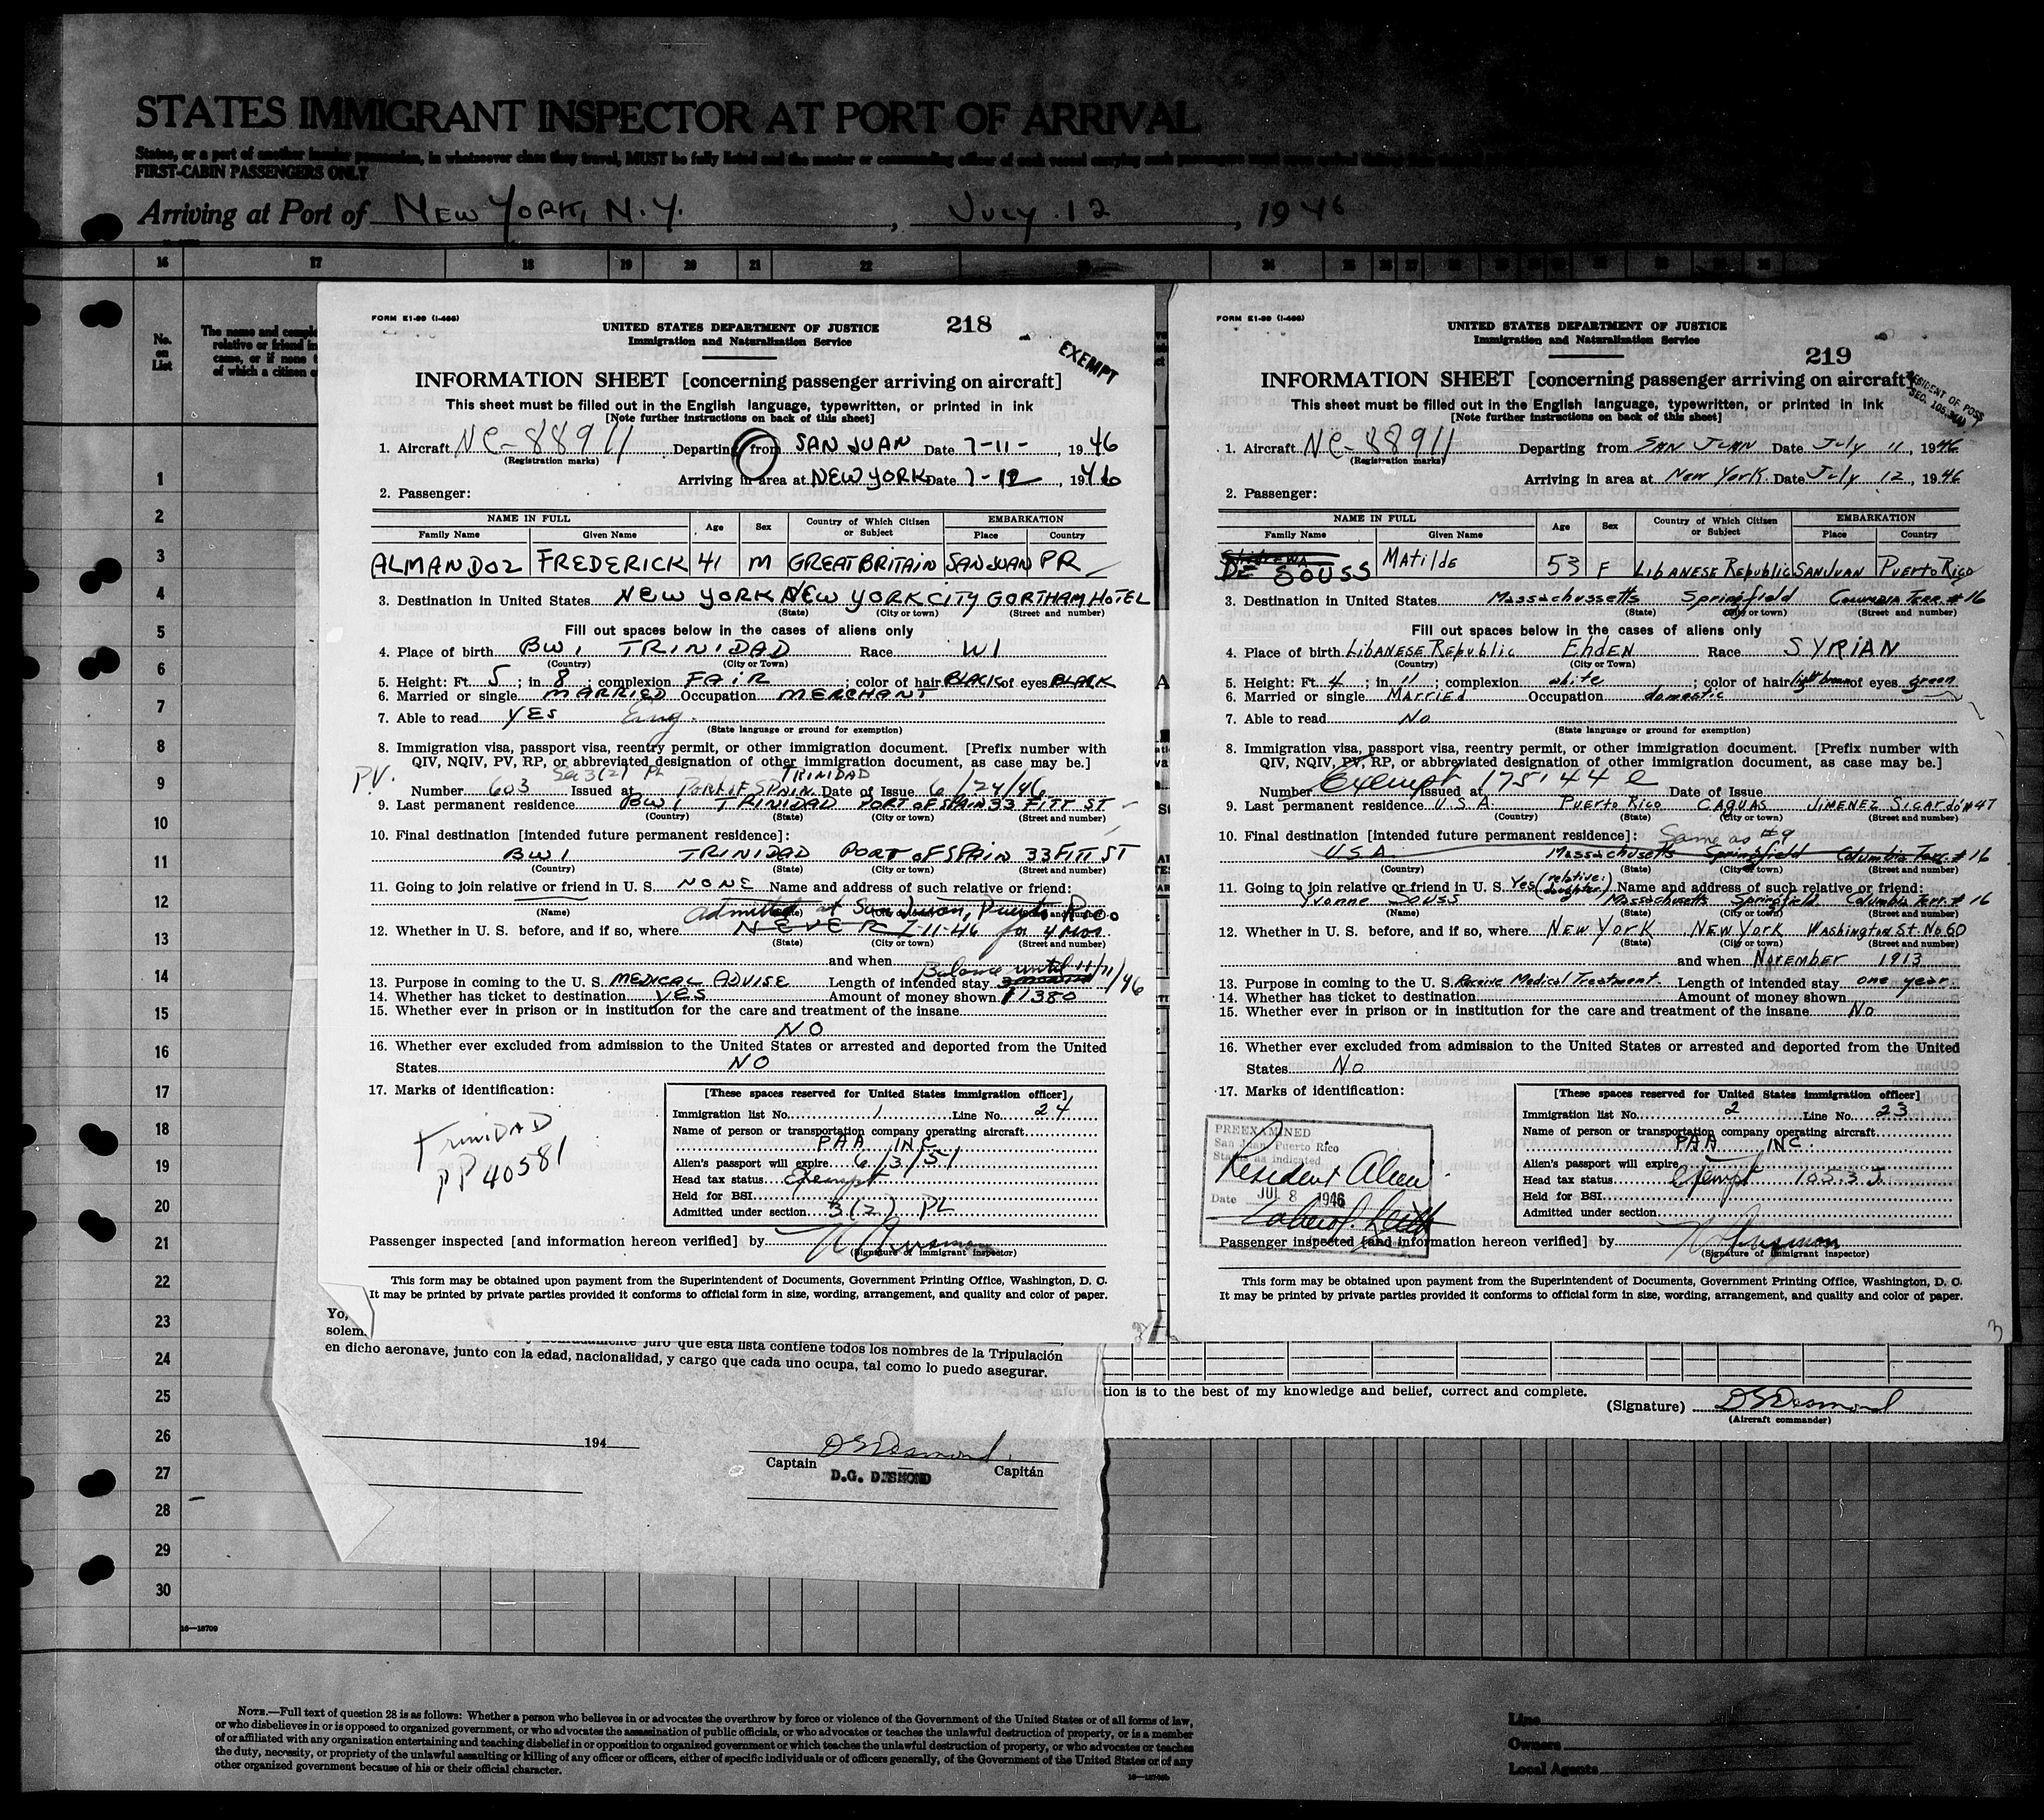 STATES IMMIGRANT INSPECTOR AT PORT OF ARRIVAL
States, or a port of another insular possession, in whatsoever class they travel, MUST be fully listed and the master or commanding officer of each vessel carrying such passengers must upon arrival
FIRST-CABIN PASSENGERS ONLY
Arriving at Port of NEW YORK, N.Y. , JULY 12 , 1946
16 17 18 19 20 21 22 23 24
No. on List
The name and comple
relative or friend in
came, or if none t
of which a citizen o
1
2
3
4
5
6
7
8
9
10
11
12
13
14
15
16
17
18
19
20
21
22
23
24
25
26
27
28
29
30
16—18709
FORM E1-99 (I-466)
UNITED STATES DEPARTMENT OF JUSTICE 218
Immigration and Naturalization Service
EXEMPT
INFORMATION SHEET [concerning passenger arriving on aircraft]
This sheet must be filled out in the English language, typewritten, or printed in ink
[Note further instructions on back of this sheet]
1. Aircraft NC-88911 Departing from SAN JUAN Date 7-11- , 1946
(Registration marks)
Arriving in area at NEW YORK Date 7-12 , 1946
2. Passenger:
NAME IN FULL Age Sex Country of Which Citizen or Subject EMBARKATION
Family Name Given Name Place Country
ALMANDOZ FREDERICK 41 M GREAT BRITAIN SAN JUAN PR
3. Destination in United States NEW YORK NEW YORK CITY GORTHAM HOTEL
(State) (City or town) (Street and number)
Fill out spaces below in the cases of aliens only
4. Place of birth BWI TRINIDAD Race WI
(Country) (City or Town)
5. Height: Ft. 5 ; in 8 ; complexion FAIR ; color of hair BLACK of eyes BLACK
6. Married or single MARRIED Occupation MERCHANT
7. Able to read YES Eng.
(State language or ground for exemption)
8. Immigration visa, passport visa, reentry permit, or other immigration document. [Prefix number with
QIV, NQIV, PV, RP, or abbreviated designation of other immigration document, as case may be.]
PV. Sec 3(2) PL TRINIDAD
Number 603 Issued at PORT OF SPAIN Date of Issue 6/24/46
9. Last permanent residence BWI TRINIDAD PORT OF SPAIN 33 FITT ST
(Country) (City or town) (Street and number)
10. Final destination [intended future permanent residence]:
BWI TRINIDAD PORT OF SPAIN 33 FITT ST
(Country) (State) (City or town) (Street and number)
11. Going to join relative or friend in U. S. NONE Name and address of such relative or friend:
admitted at San Juan, Puerto Rico
(Name) (State) (City or town) (Street and number)
12. Whether in U. S. before, and if so, where NEVER 7-11-46 for 4 mos.
(State) (City or town) (Street and number)
and when Balance until 11/11/46
13. Purpose in coming to the U. S. MEDICAL ADVISE Length of intended stay
14. Whether has ticket to destination YES Amount of money shown $1380
15. Whether ever in prison or in institution for the care and treatment of the insane
NO
16. Whether ever excluded from admission to the United States or arrested and deported from the United
States NO
17. Marks of identification:
TRINIDAD
PP 40581
[These spaces reserved for United States immigration officer]
Immigration list No. 1 Line No. 24
Name of person or transportation company operating aircraft
PAA INC
Alien's passport will expire 6/3/51
Head tax status Exempt
Held for BSI
Admitted under section 3(2) PL
Passenger inspected [and information hereon verified] by
(Signature of immigrant inspector)
This form may be obtained upon payment from the Superintendent of Documents, Government Printing Office, Washington, D. C.
It may be printed by private parties provided it conforms to official form in size, wording, arrangement, and quality and color of paper.
FORM E1-99 (I-466)
UNITED STATES DEPARTMENT OF JUSTICE
Immigration and Naturalization Service 219
RESIDENT OF POSS
INFORMATION SHEET [concerning passenger arriving on aircraft]
This sheet must be filled out in the English language, typewritten, or printed in ink
[Note further instructions on back of this sheet]
1. Aircraft NC-88911 Departing from SAN JUAN Date July 11, 1946
(Registration marks)
Arriving in area at New York. Date July 12, 1946
2. Passenger:
NAME IN FULL Age Sex Country of Which Citizen or Subject EMBARKATION
Family Name Given Name Place Country
DE SOUSS Matilde 53 F LIBANESE Republic SAN JUAN Puerto Rico
3. Destination in United States Massachussetts Springfield Columbia Terr. # 16
(State) (City or town) (Street and number)
Fill out spaces below in the cases of aliens only
4. Place of birth LIBANESE Republic Ehden Race SYRIAN
(Country) (City or Town)
5. Height: Ft. 4 ; in 11 ; complexion white ; color of hair light brown of eyes green
6. Married or single Married Occupation domestic
7. Able to read No
(State language or ground for exemption)
8. Immigration visa, passport visa, reentry permit, or other immigration document. [Prefix number with
QIV, NQIV, PV, RP, or abbreviated designation of other immigration document, as case may be.]
Number Exempt Issued at 175.44 e Date of Issue
9. Last permanent residence U.S.A. Puerto Rico CAGUAS JIMENEZ SICARDÓ #47
(Country) (City or town) (Street and number)
10. Final destination [intended future permanent residence]: Same as #9
U.S.A. Massachusetts Springfield Columbia Terr. # 16
(Country) (State) (City or town) (Street and number)
11. Going to join relative or friend in U. S. Yes (relative: daughter) Name and address of such relative or friend:
Yvonne Souss Massachusetts Springfield Columbia Terr. # 16
(Name) (State) (City or town) (Street and number)
12. Whether in U. S. before, and if so, where NEW YORK NEW YORK Washington St. No 60
(State) (City or town) (Street and number)
and when November 1913
13. Purpose in coming to the U. S. Receive Medical Treatment. Length of intended stay one year
14. Whether has ticket to destination Amount of money shown
15. Whether ever in prison or in institution for the care and treatment of the insane No
16. Whether ever excluded from admission to the United States or arrested and deported from the United
States No
17. Marks of identification:
PREEXAMINED
San Juan, Puerto Rico
Status as indicated
Resident Alien
Date JUL 8 1946
[These spaces reserved for United States immigration officer]
Immigration list No. 2 Line No. 23
Name of person or transportation company operating aircraft
PAA INC.
Alien's passport will expire
Head tax status Exempt 105.3 J.
Held for BSI
Admitted under section
Passenger inspected [and information hereon verified] by
(Signature of immigrant inspector)
This form may be obtained upon payment from the Superintendent of Documents, Government Printing Office, Washington, D. C.
It may be printed by private parties provided it conforms to official form in size, wording, arrangement, and quality and color of paper.
3
Yo,
solem
juro que esta lista contiene todos los nombres de la Tripulación
en dicho aeronave, junto con la edad, nacionalidad, y cargo que cada uno ocupa, tal como lo puedo asegurar.
194
DG Desmond
Captain Capitán
D.G. DESMOND
tion is to the best of my knowledge and belief, correct and complete.
(Signature) DG Desmond
(Aircraft commander)
NOTE.—Full text of question 28 is as follows: Whether a person who believes in or advocates the overthrow by force or violence of the Government of the United States or of all forms of law,
or who disbelieves in or is opposed to organized government, or who advocates the assassination of public officials, or who advocates or teaches the unlawful destruction of property, or is a member
of or affiliated with any organization entertaining and teaching disbelief in or opposition to organized government or which teaches the unlawful destruction of property, or who advocates or teaches
the duty, necessity, or propriety of the unlawful assaulting or killing of any officer or officers, either of specific individuals or of officers generally, of the Government of the United States or of any
other organized government because of his or their official character.
Line
Owners
Local Agents